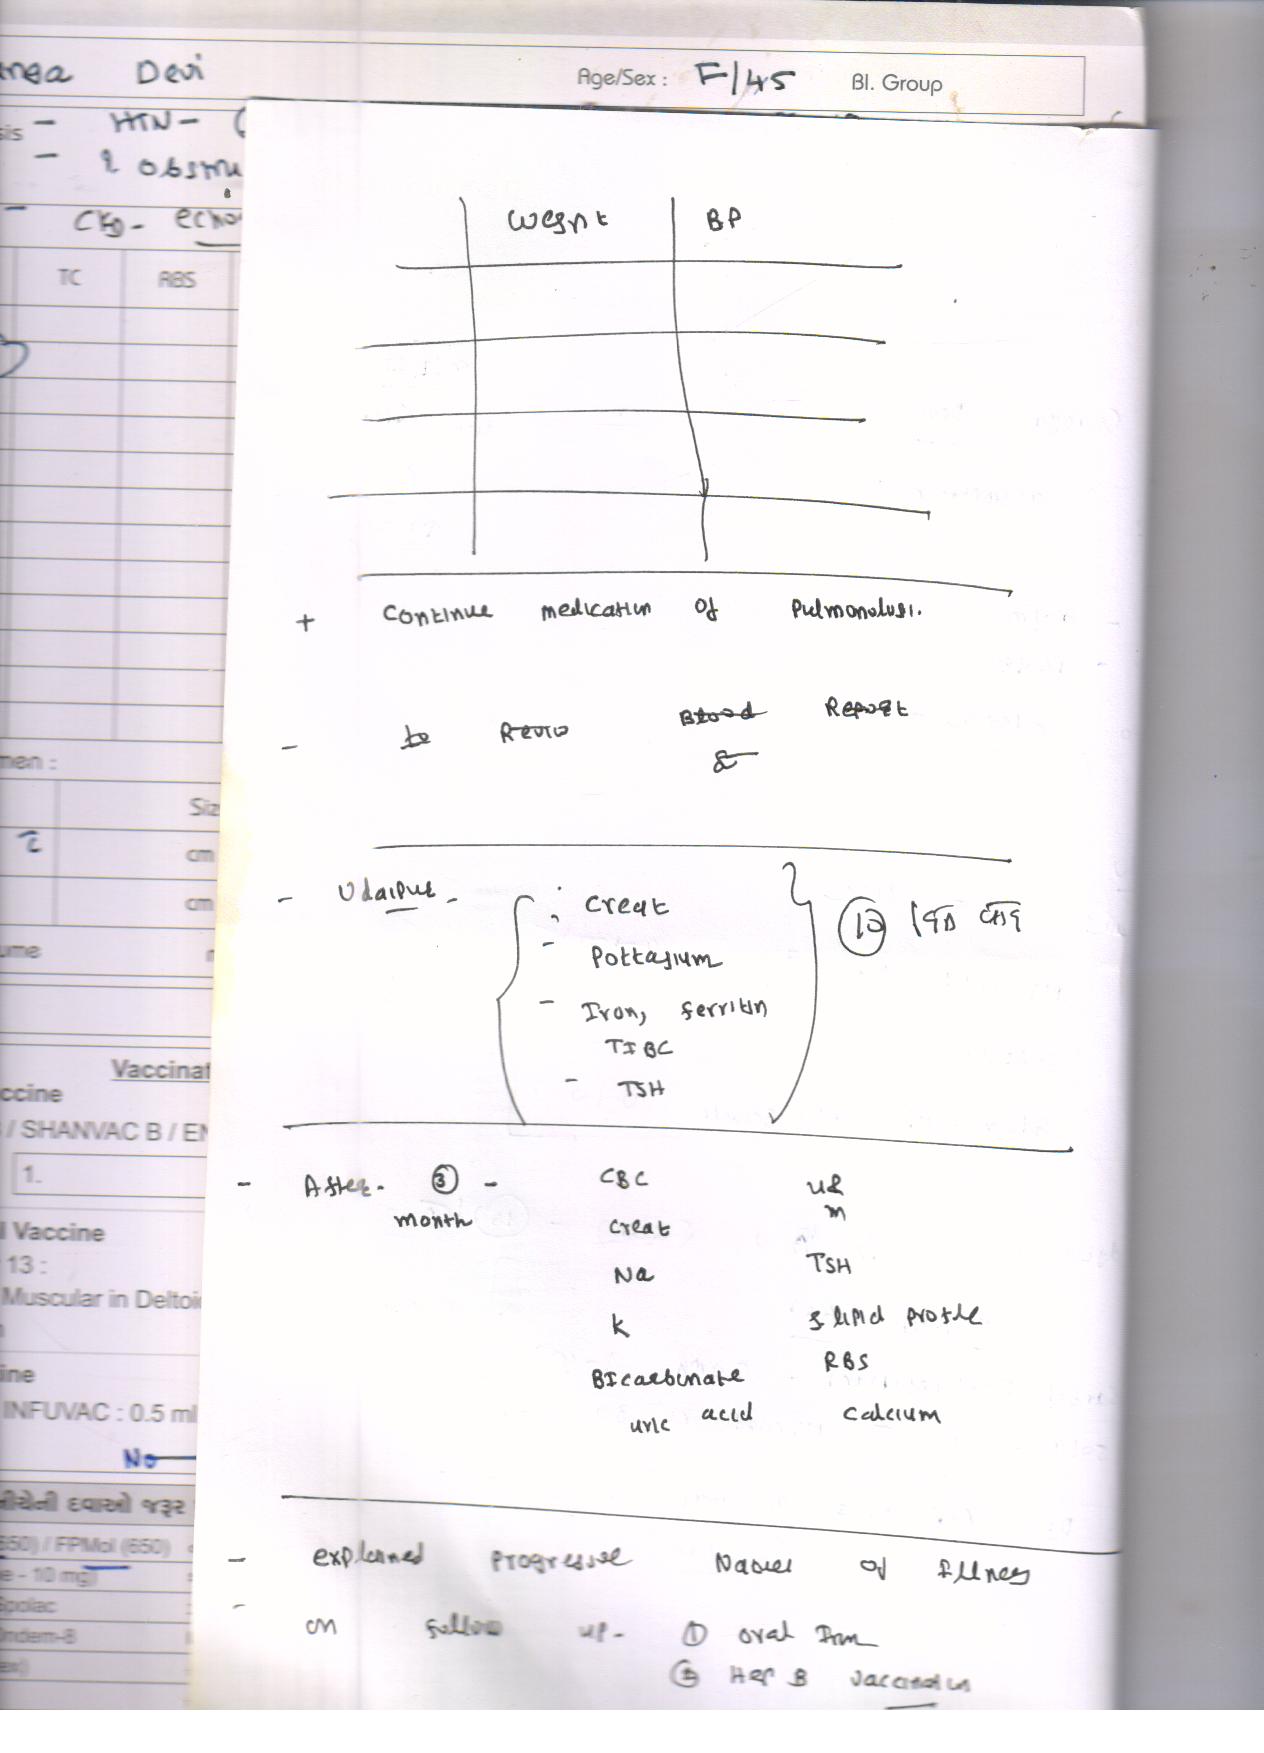 Devi Age/Sex : F/45 Bl. Group
HTN -
CKD - echo
TC RBS
Weignt BP
+ Continue medication of Pulmonologi.
- to Revio Blood Report
&
men :
Siz
cm
cm
ume
- Udaipur - - Creat
- Pottasium
- Iron, ferritin
TIBC
- TSH
Vaccinat
ccine
/ SHANVAC B / EN
1.
- After - ③ - CBC
month Creat
Na
K
Bicarbonate
uric acid
TSH
S lipid profile
RBS
Calcium
l Vaccine
13 :
Muscular in Deltoi
ine
INFUVAC : 0.5 ml
No
નીચેની દવાઓ જરૂર
650) / FPMol (650)
e - 10 mg)
Spolac
Ondem-8
- explained progressive Nature of illness
- on follow up - ① oral Iron
② Hep B vaccination